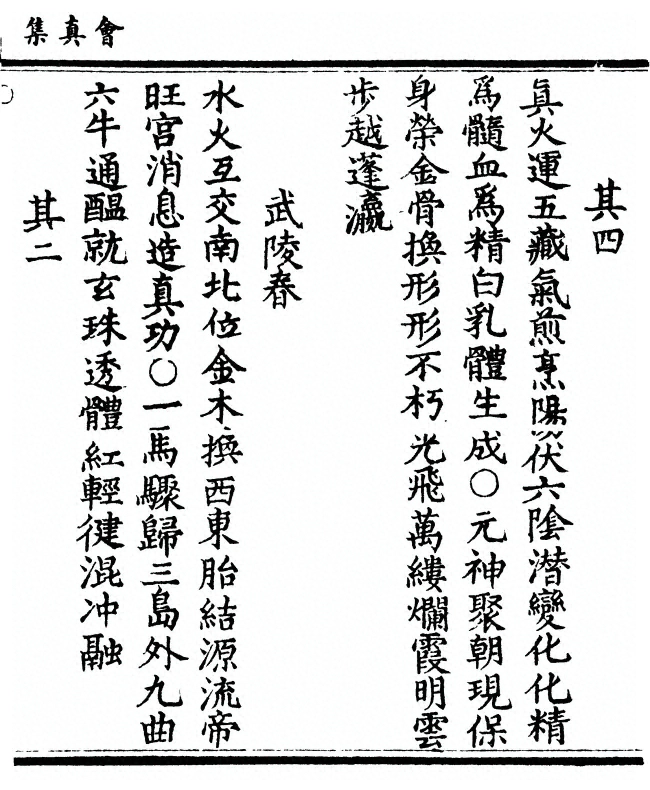 集真會
其四
真火運五藏氣煎烹陽伏六陰潛變化化精
爲髓血爲精白乳體生成〇元神聚朝現保
身榮金骨換形形不朽光飛萬縷爛霞明雲
步越蓬瀛
武陵春
水火互交南北位金木換西東胎結源流帝
旺宮消息造真功〇一馬驟歸三島外九曲
六牛通醞就玄珠透體紅輕健混冲融
其二